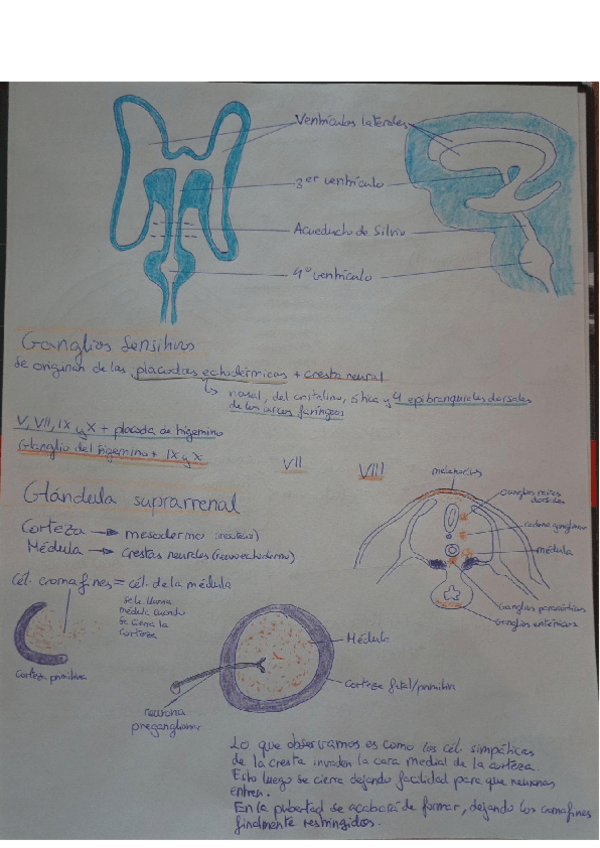 Ventrículos laterales
3er ventrículo
Acueducto de Silvio
4º ventrículo
Ganglios Sensitivos
Se originan de las placodas ectodérmicas + cresta neural
nasal, del cristalino, ótica y 4 epibranquiales dorsales
de los arcos faríngeos
V, VII, IX y X + placoda de trigémino
Ganglio del trigémino + IX y X
VII VIII
Glándula suprarrenal
Corteza → mesodermo
Médula → crestas neurales (neuroectodermo)
Cél. cromafines = cél. de la médula
se le llama
médula cuando
se cierra la
corteza
corteza primitiva
melanocitos
Ganglios
dorsales
cadena ganglionar
médula
Ganglios
Ganglios entéricos
Médula
Corteza fetal/primitiva
neurona
preganglionar
Lo que observamos es como los cél. simpáticas
de la cresta invaden la cara medial de la corteza.
Esto luego se cierra dejando facilidad para que neuronas
entren.
En la pubertad se acabará de formar, dejando los cromafines
finalmente restringidos.